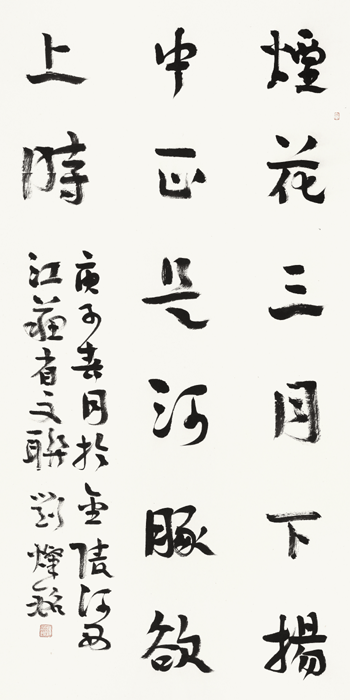 煙花三月下揚
中正是河豚欲
上時
庚子春月於金陵河西
江蘇省文聯 劉燦銘